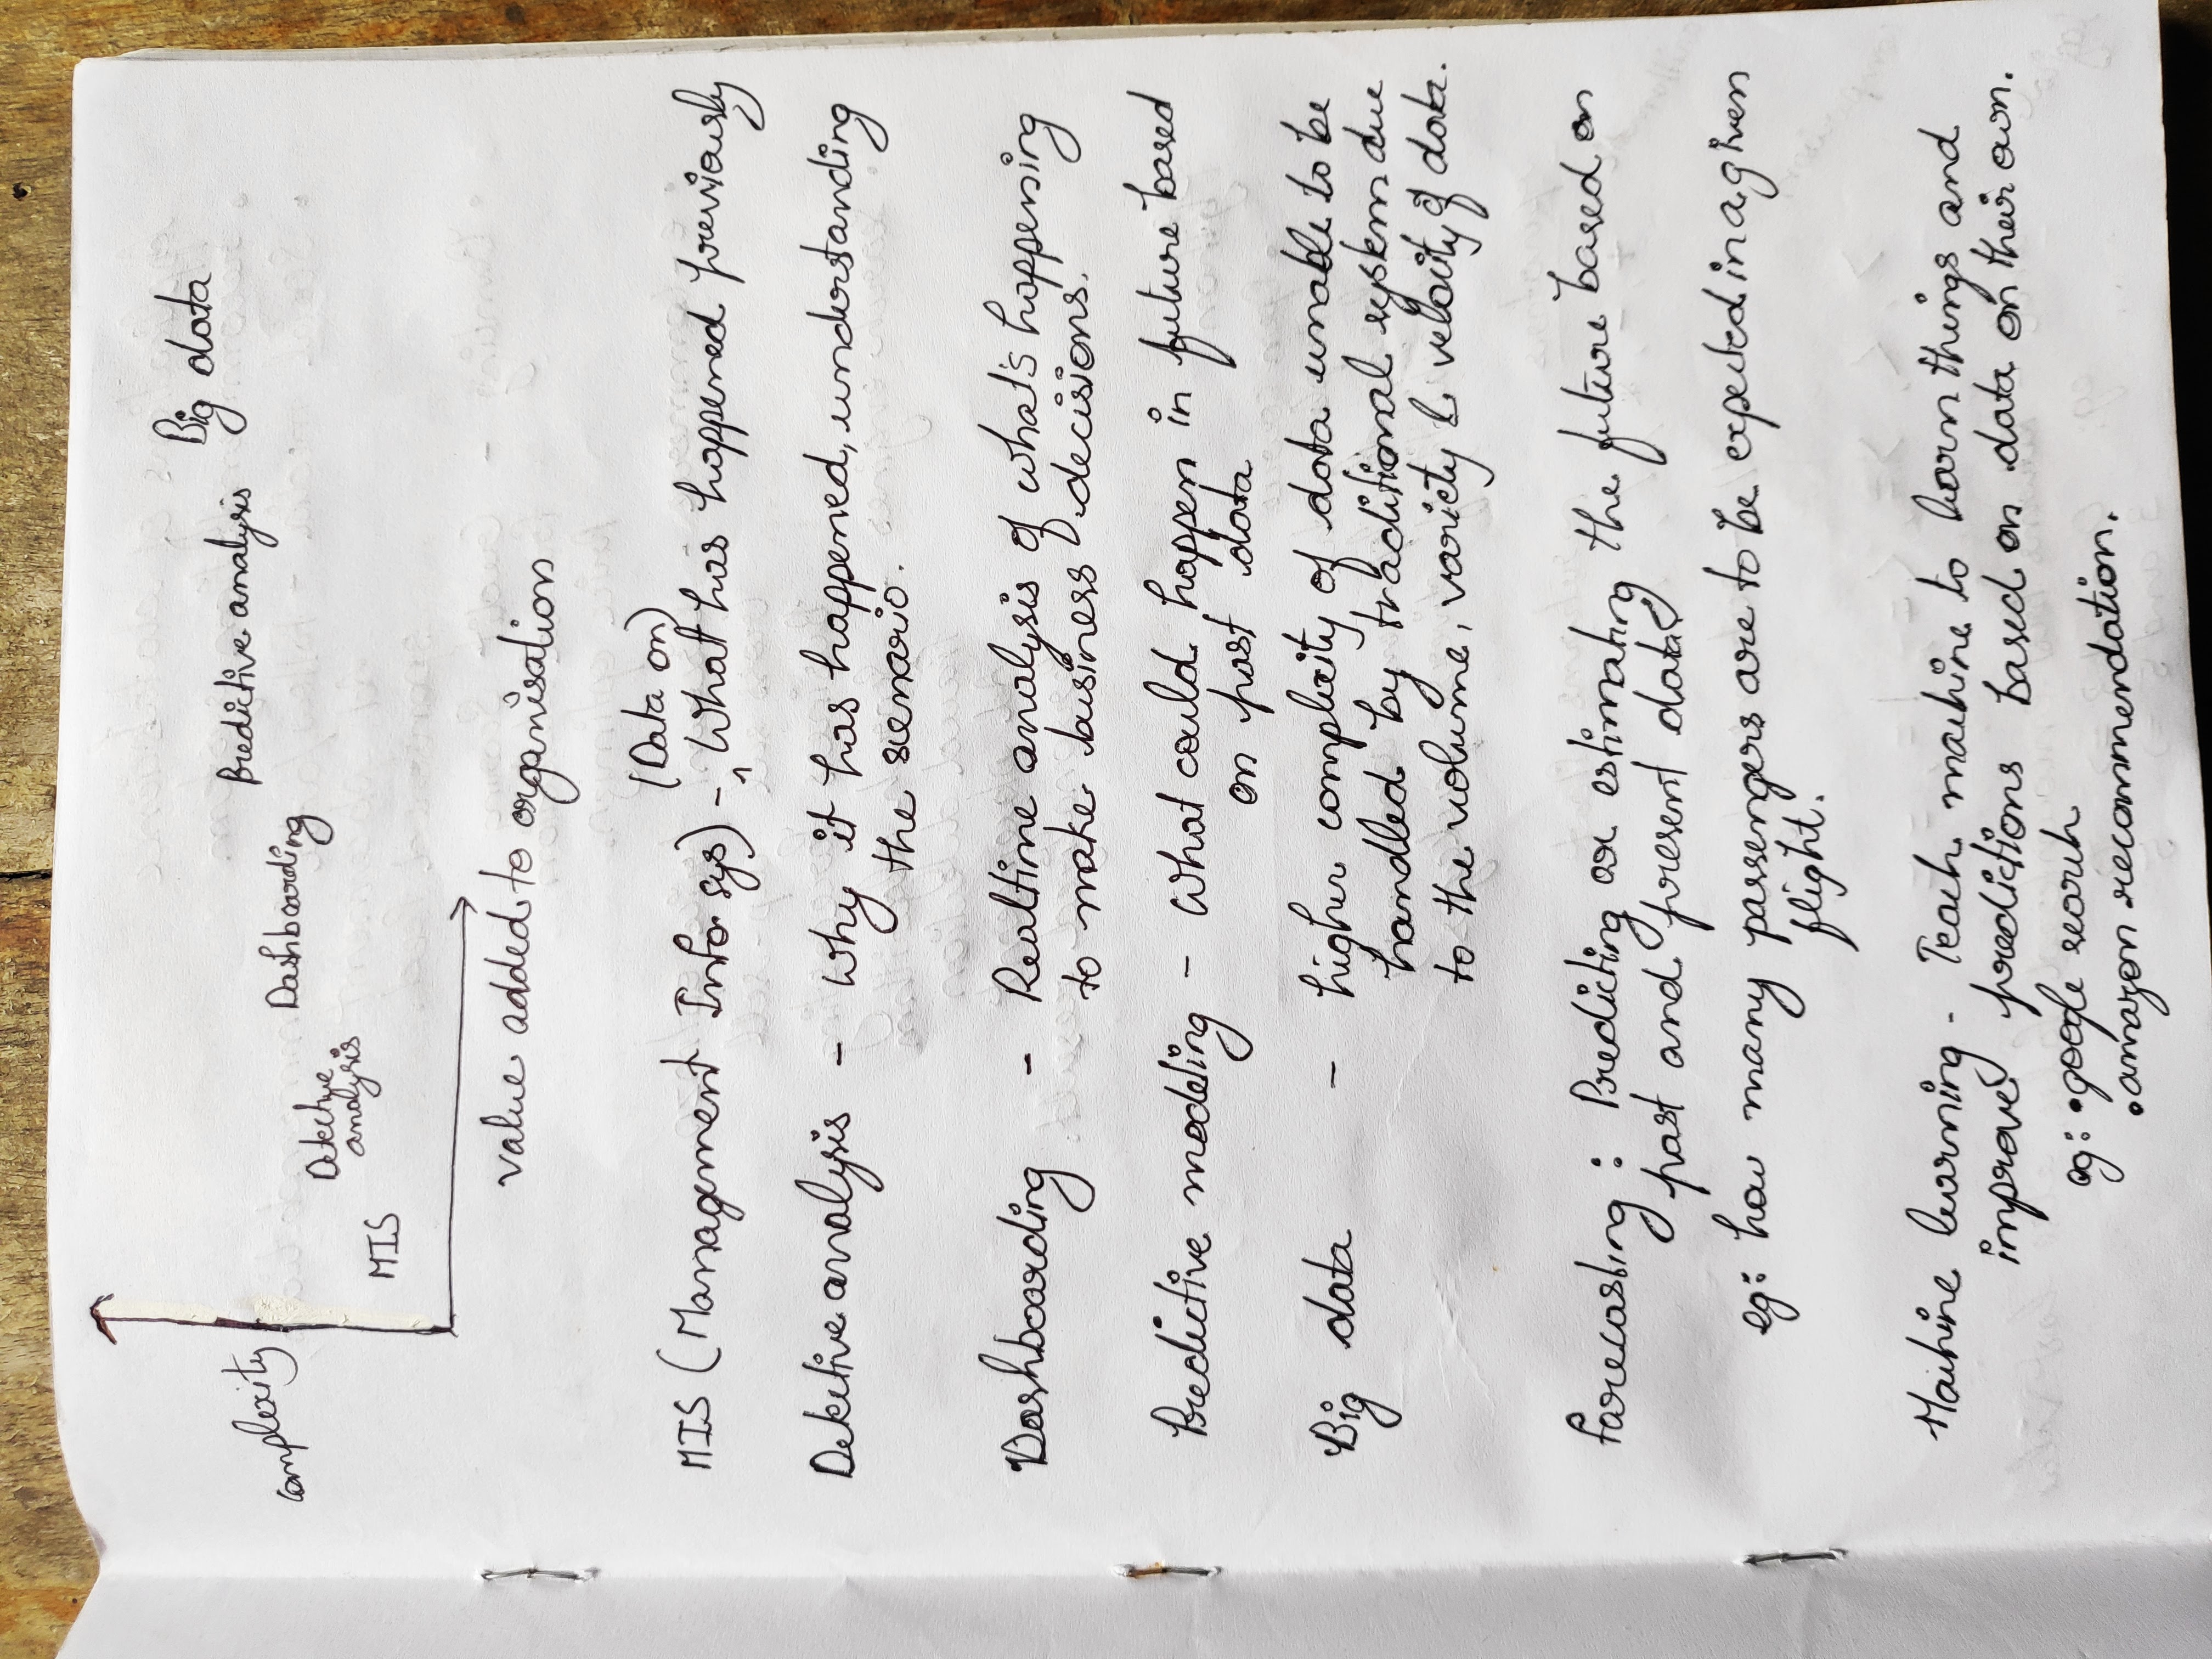 Big data
Predictive analysis
complexity
Dashboarding
Detective
analysis
MIS
value added to organisation
(Data on)
MIS (Management Info sys) - ^ What has happened previously
Detective analysis - Why it has happened, understanding
the scenario.
Dashboarding - Realtime analysis of what's happening
to make business decisions.
Predictive modeling - What could happen in future based
on past data
Big data - higher complexity of data unable to be
handled by traditional system due
to the volume, variety & velocity of data.
Forecasting : Predicting or estimating the future based on
past and present data
eg: how many passengers are to be expected in a given
flight.
Machine learning - Teach machine to learn things and
improve predictions based on data on their own.
eg: • google search
• amazon recommendation.